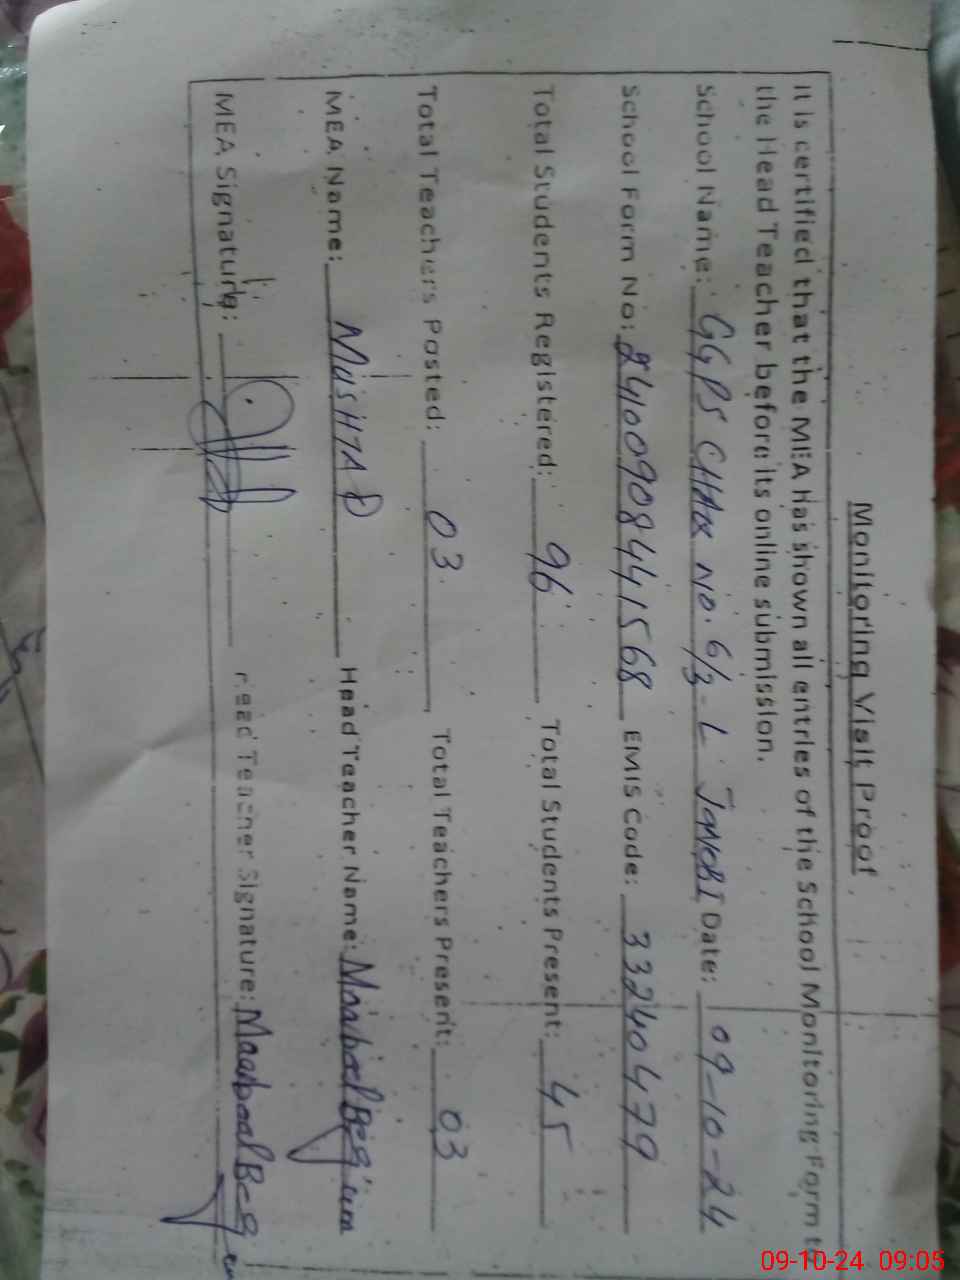 Monitoring Visit Proof
It is certified that the MEA has shown all entries of the School Monitoring Form to
the Head Teacher before its online submission.
School Name: GGPS CHAK NO. 6/3-L JANOBI Date: 09-10-24
School Form No: 24100908441568 EMIS Code: 33240479
Total Students Registered: 96 Total Students Present: 45
Total Teachers Posted: 03 Total Teachers Present: 03
MEA Name: MUSHTAQ Head Teacher Name: Maqbool Begum
MEA Signature: Head Teacher Signature: Maqbool Begum
09-10-24 09:05